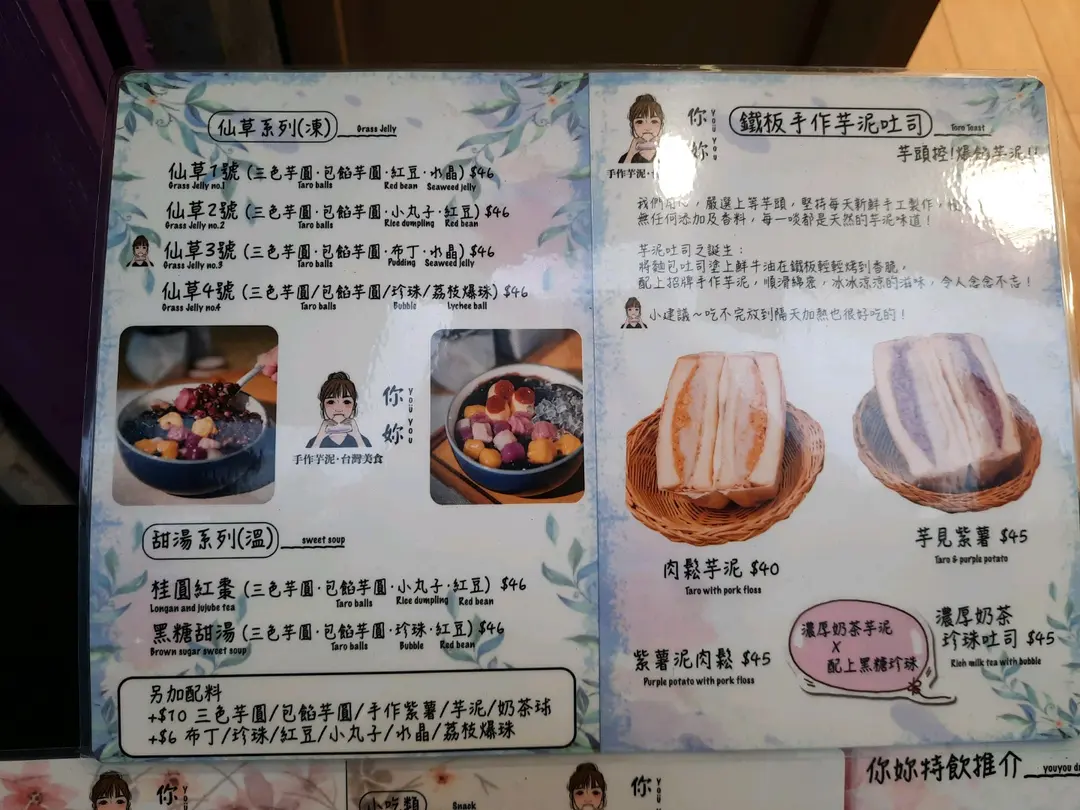 仙草系列(凍) Grass Jelly
仙草1號 (三色芋圓·包餡芋圓·紅豆·水晶) $46
Grass Jelly no.1 Taro balls Red bean Seaweed jelly
仙草2號 (三色芋圓·包餡芋圓·小丸子·紅豆) $46
Grass Jelly no.2 Taro balls Rice dumpling Red bean
仙草3號 (三色芋圓·包餡芋圓·布丁·水晶) $46
Grass Jelly no.3 Taro balls Pudding Seaweed jelly
仙草4號 (三色芋圓/包餡芋圓/珍珠/荔枝爆珠) $46
Grass Jelly no.4 Taro balls Bubble Lychee ball
你妳
YOU YOU
手作芋泥·台灣美食
甜湯系列(溫) sweet soup
桂圓紅棗 (三色芋圓·包餡芋圓·小丸子·紅豆) $46
Longan and jujube tea Taro balls Rice dumpling Red bean
黑糖甜湯 (三色芋圓·包餡芋圓·珍珠·紅豆) $46
Brown sugar sweet soup Taro balls Bubble Red bean
另加配料
+$10 三色芋圓/包餡芋圓/手作紫薯/芋泥/奶茶球
+$6 布丁/珍珠/紅豆/小丸子/水晶/荔枝爆珠
你妳
YOU YOU
手作芋泥·台
鐵板手作芋泥吐司 Taro Toast
芋頭控!爆餡芋泥!!
我們用心，嚴選上等芋頭，堅持每天新鮮手工製作，
無任何添加及香料，每一啖都是天然的芋泥味道！
芋泥吐司之誕生：
將麵包吐司塗上鮮牛油在鐵板輕輕烤到香脆，
配上招牌手作芋泥，順滑綿密，冰冰涼涼的滋味，令人念念不忘！
小建議～吃不完放到隔天加熱也很好吃的！
肉鬆芋泥 $40
Taro with pork floss
芋見紫薯 $45
Taro & purple potato
紫薯泥肉鬆 $45
Purple potato with pork floss
濃厚奶茶芋泥
X
配上黑糖珍珠
濃厚奶茶
珍珠吐司 $45
Rich milk tea with bubble
你
YOU
小吃類 Snack
你
YOU
你妳特飲推介 youyou